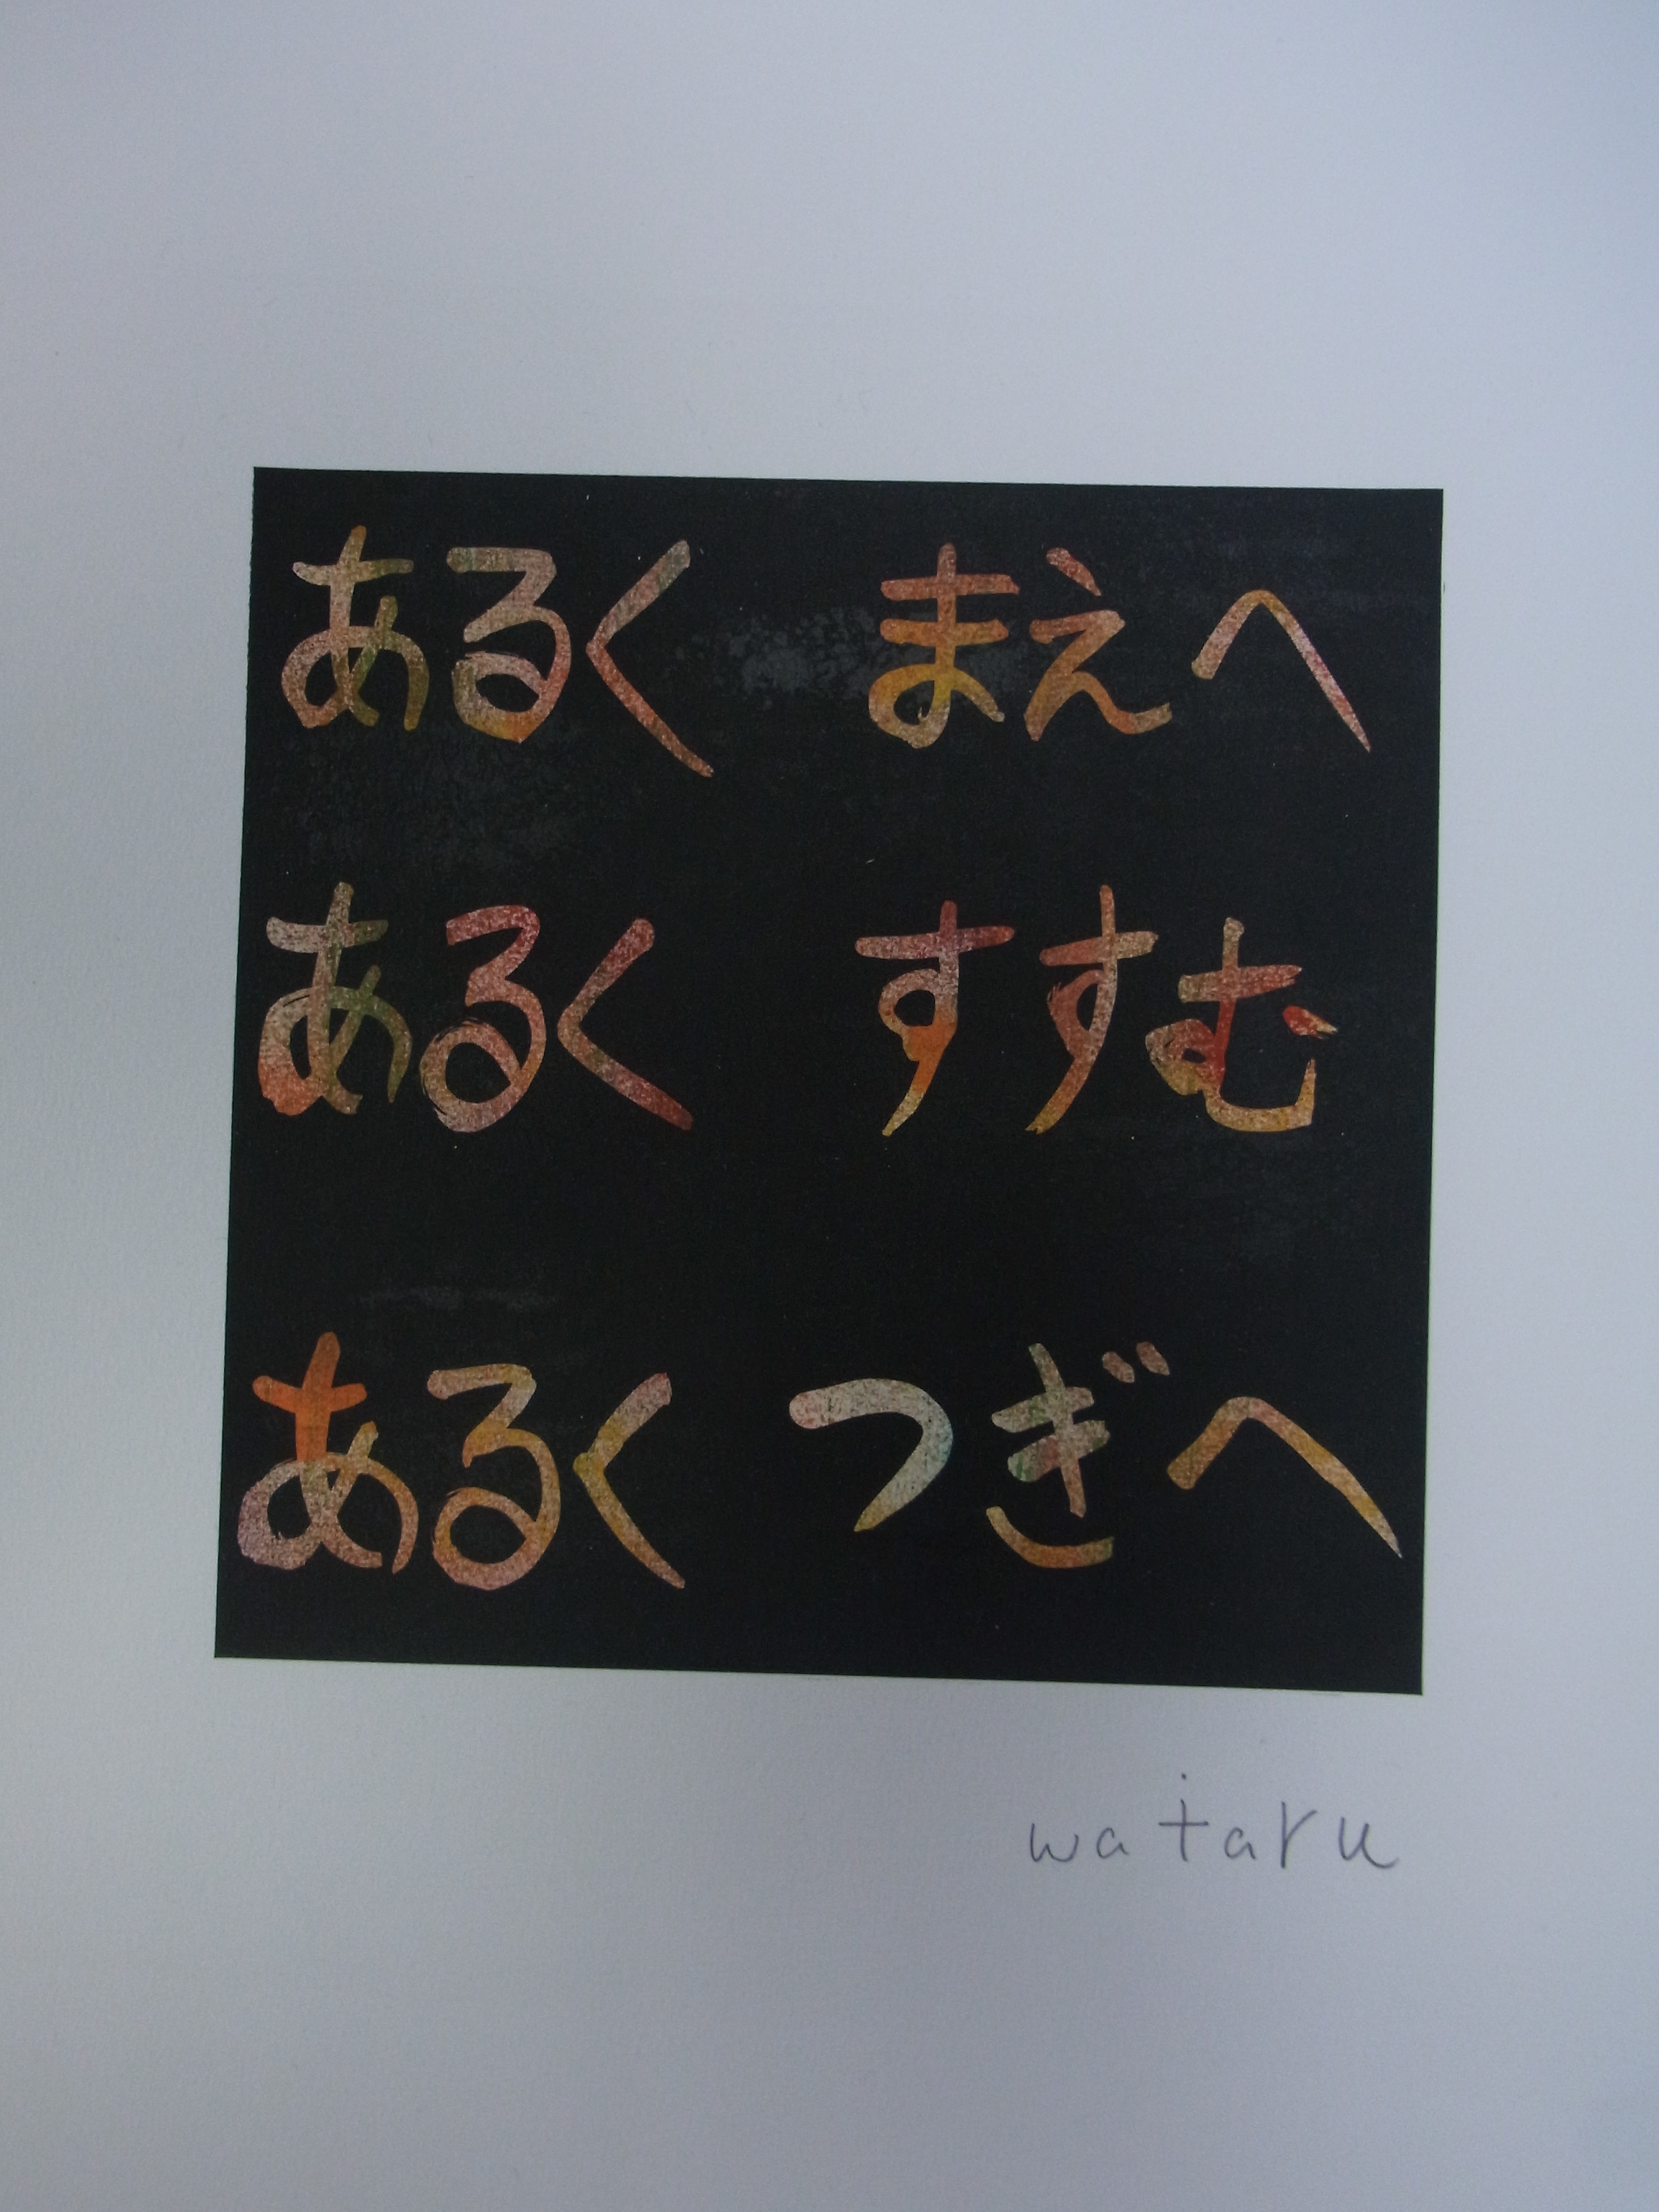 あるく まえへ
あるく すすむ
あるく つぎへ
wataru